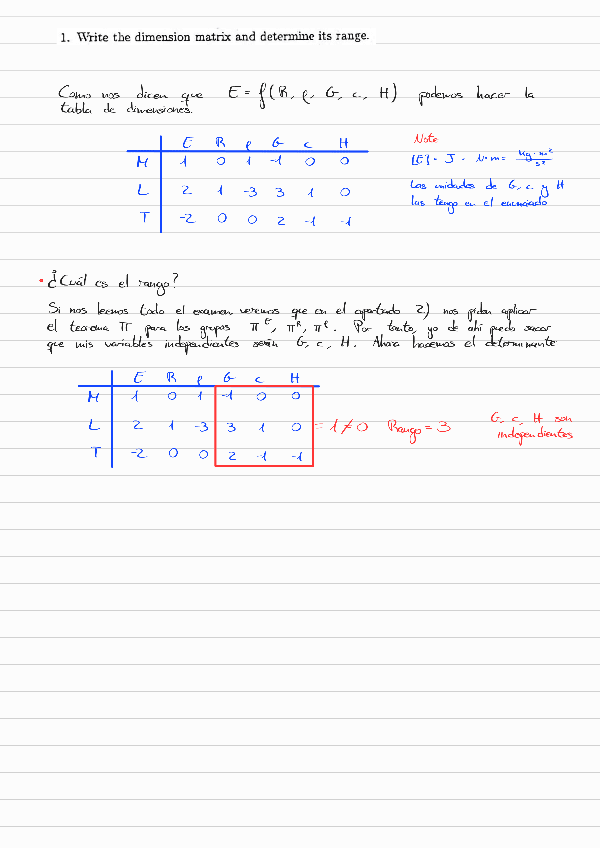 1. Write the dimension matrix and determine its range.
Como nos dicen que E = f(R, ρ, G, c, H) podemos hacer la
tabla de dimensiones.
E R ρ G c H
M 1 0 1 -1 0 0
L 2 1 -3 3 1 0
T -2 0 0 2 -1 -1
Note
[E] = J = N·m = kg·m²/s²
Las unidades de G, c y H
las tengo en el enunciado
• ¿Cuál es el rango?
Si nos leemos todo el examen veremos que en el apartado 2.) nos piden aplicar
el teorema π para los grupos π^E, π^R, π^ρ. Por tanto, yo de ahí puedo sacar
que mis variables independientes serán G, c, H. Ahora hacemos el determinante
E R ρ G c H
M 1 0 1 -1 0 0
L 2 1 -3 3 1 0 = 1 ≠ 0 Rango = 3
T -2 0 0 2 -1 -1
G, c, H son
independientes